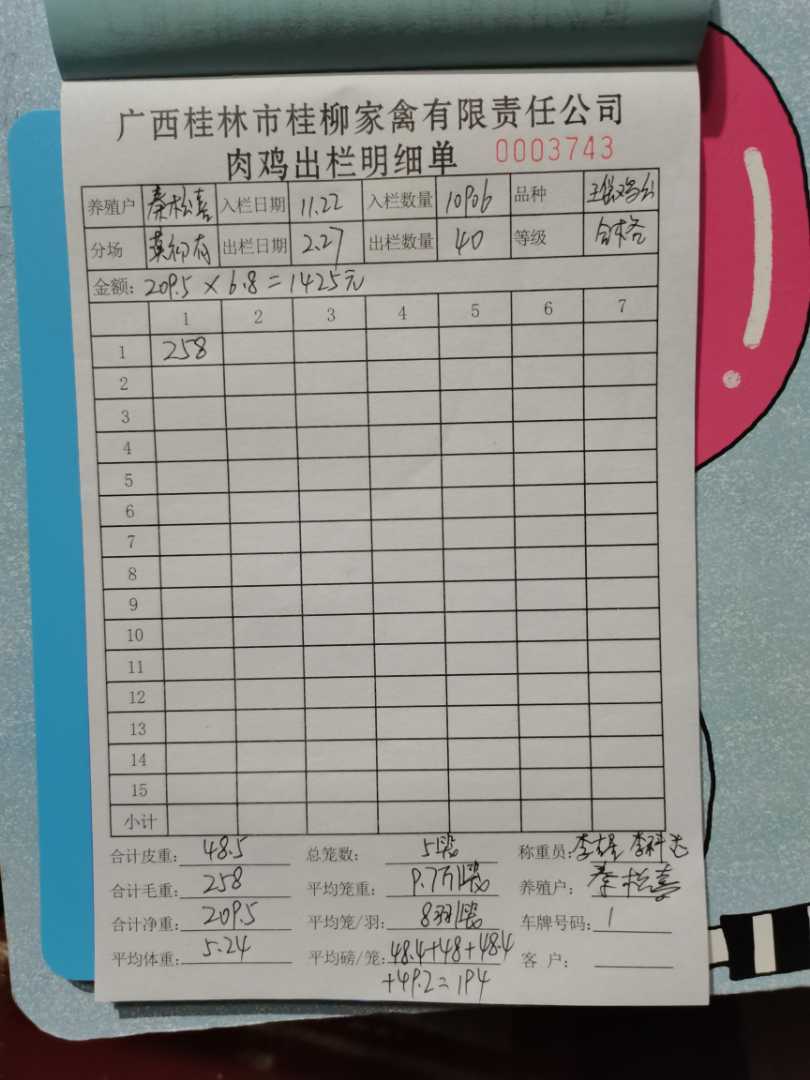 广西桂林市桂柳家禽有限责任公司
肉鸡出栏明细单 0003743
养殖户 秦松喜 入栏日期 11.22 入栏数量 10906 品种
分场 出栏日期 2.27 出栏数量 40 等级 合格
金额: 209.5 × 6.8 = 1425元
1 2 3 4 5 6 7
1 258
2
3
4
5
6
7
8
9
10
11
12
13
14
15
小计
合计皮重: 48.5 总笼数: 5 称重员:
合计毛重: 258 平均笼重: 9.7 养殖户: 秦松喜
合计净重: 209.5 平均笼/羽: 8羽 车牌号码: 1
平均体重: 5.24 平均磅/笼: 48.4+48+48.4 客 户:
+49.2=194